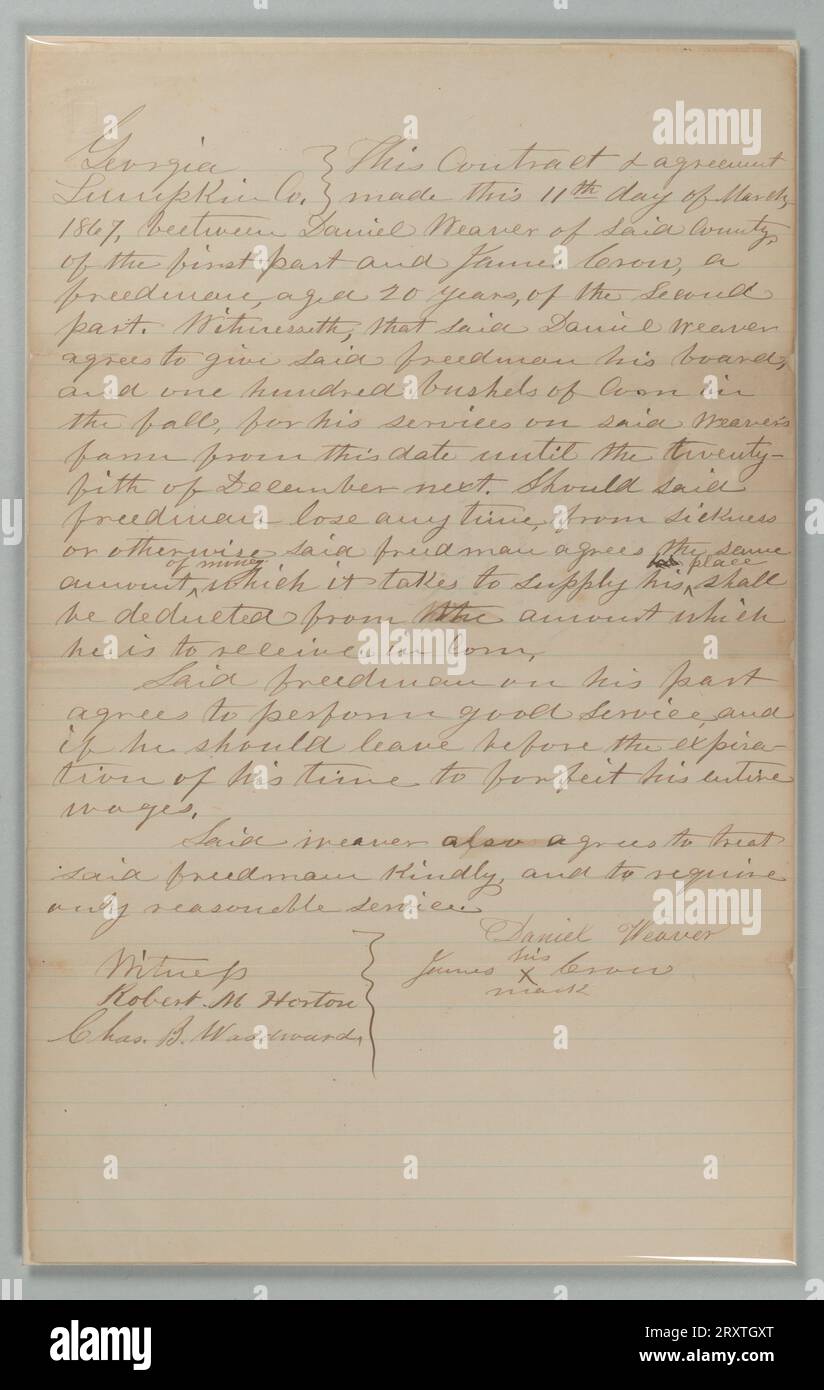 Georgia } This Contract & agreement
Lumpkin Co. } made this 11th day of March,
1867, between Daniel Weaver of said County,
of the first part and James Cron, a
freedman, aged 20 years, of the second
part. Witnesseth, that said Daniel Weaver
agrees to give said freedman his board,
and one hundred bushels of Corn in
the fall, for his services on said Weaver's
farm from this date until the twenty-
fifth of December next. Should said
freedman lose any time, from sickness
or otherwise said freedman agrees the same
of money place
amount which it takes to supply his shall
be deducted from the amount which
he is to receive in Corn.
Said freedman on his part
agrees to perform good service, and
if he should leave before the expira-
tion of his time to forfeit his entire
wages.
Said Weaver also agrees to treat
said freedman Kindly, and to require
only reasonable service
Daniel Weaver
his
James X Cron
mark
Witness
Robert. M Horton
Chas. B. Woodward,
alamy
alamy
alamy
www.alamy.com
2RXTGXT